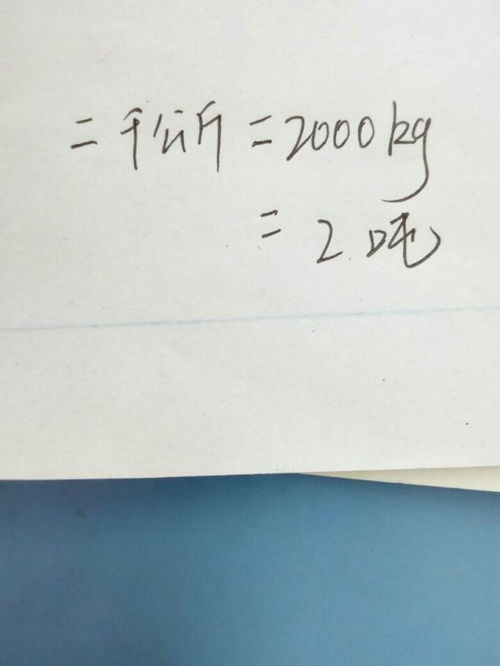 二千公斤=2000kg
=2吨